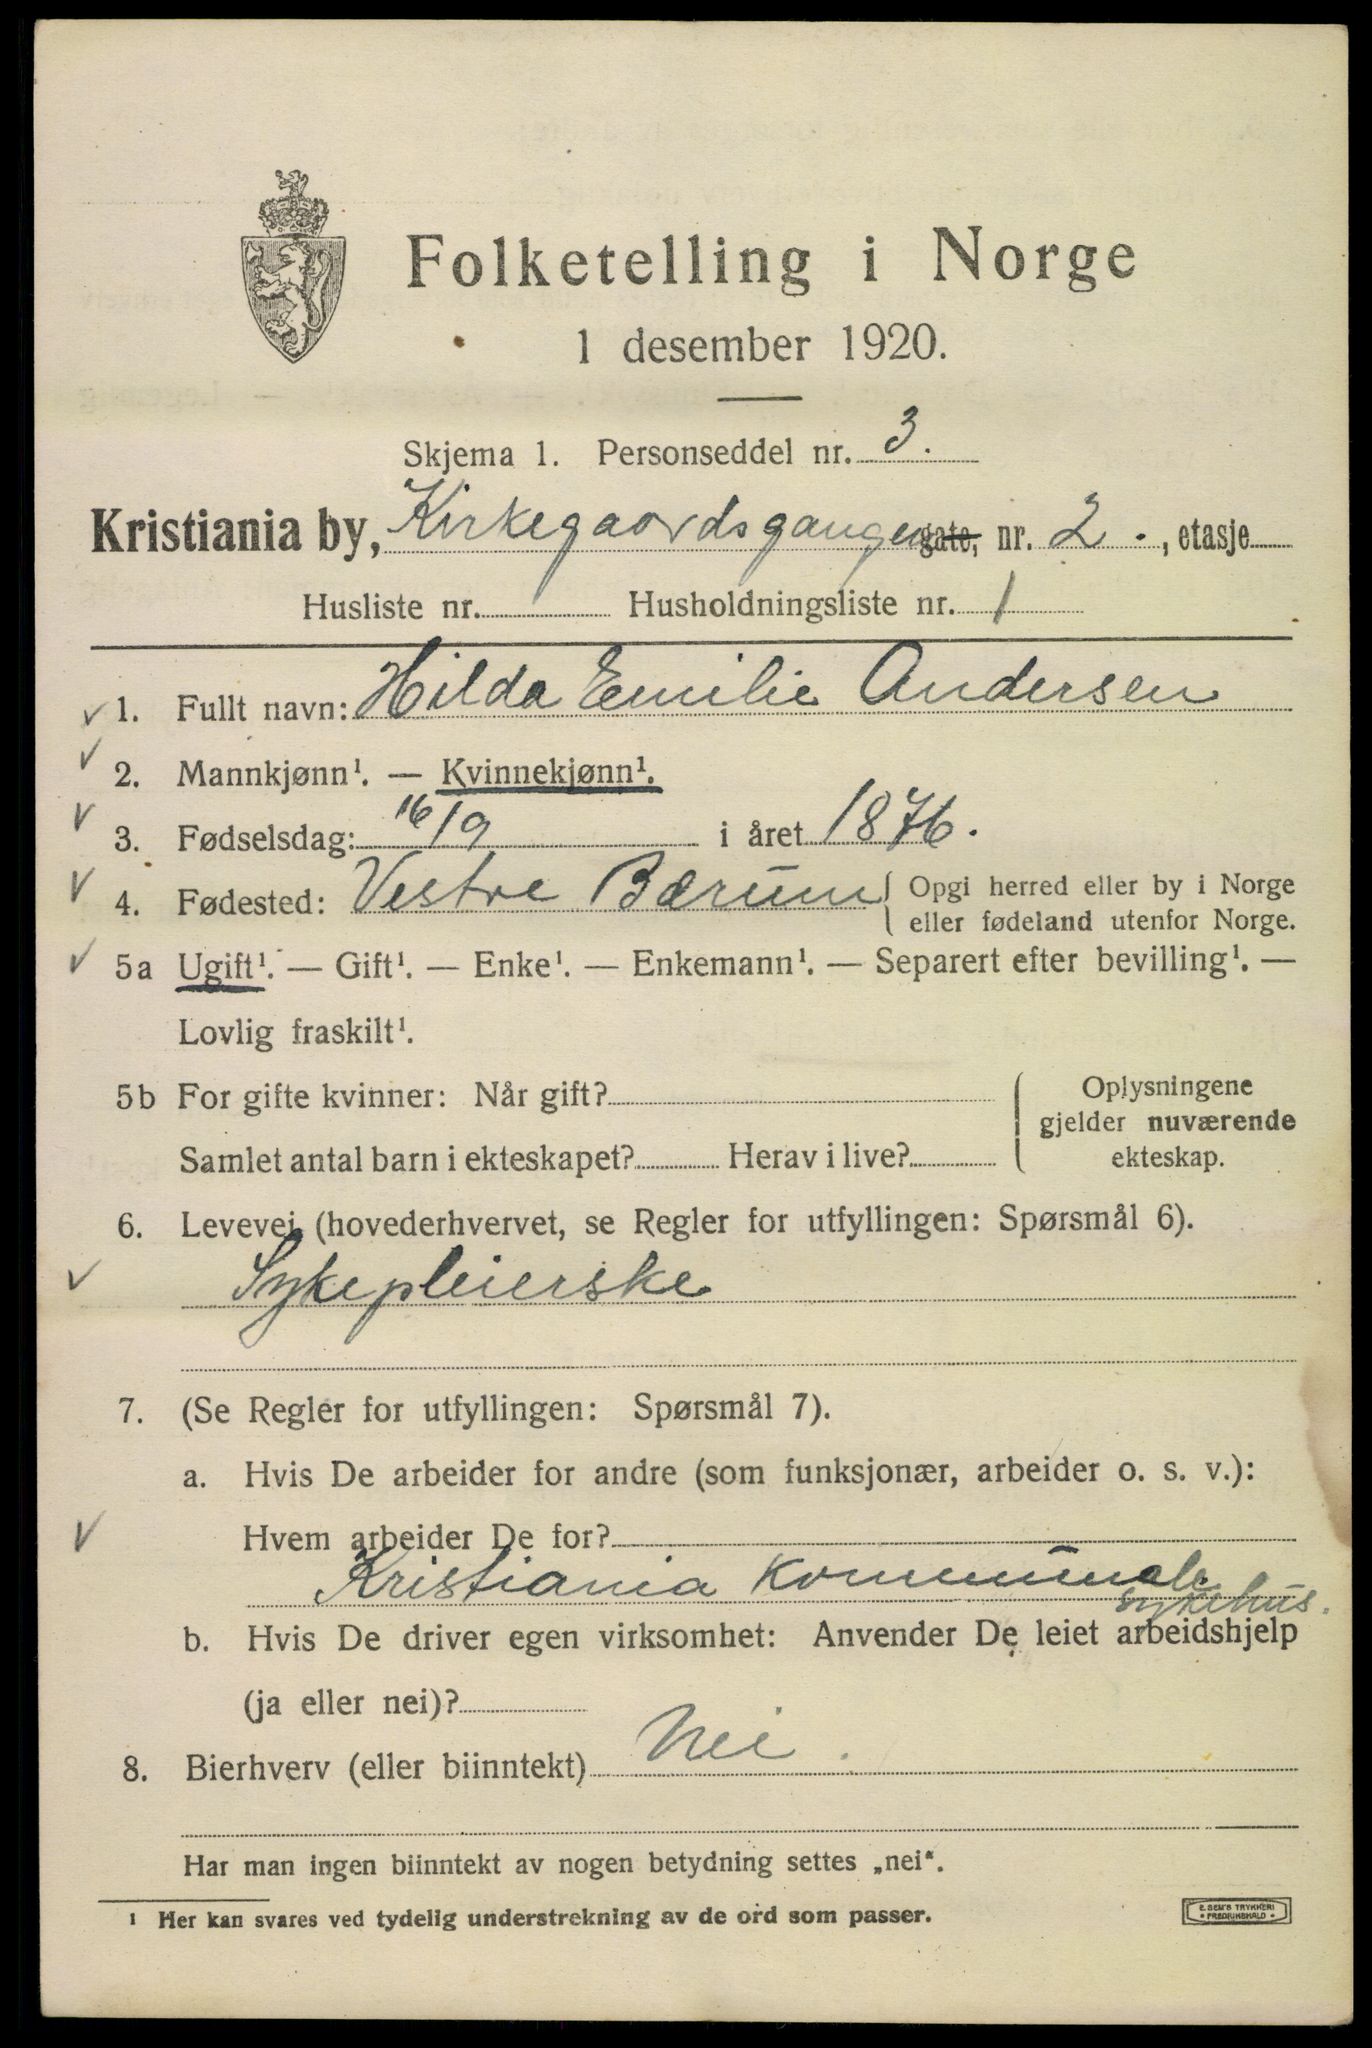 Folketelling i Norge
1 desember 1920.
Skjema 1. Personseddel nr. 3.
Kristiania by, Kirkegaardsgangen gate, nr. 2. , etasje
Husliste nr. Husholdningsliste nr. 1
1. Fullt navn: Hilda Emilie Andersen
2. Mannkjønn¹. — Kvinnekjønn¹.
3. Fødselsdag: 16/9 i året 1876.
4. Fødested: Vestre Bærum { Opgi herred eller by i Norge
eller fødeland utenfor Norge.
5a Ugift¹. — Gift¹. — Enke¹. — Enkemann¹. — Separert efter bevilling¹. —
Lovlig fraskilt¹.
5b For gifte kvinner: Når gift? Oplysningene
gjelder nuværende
Samlet antal barn i ekteskapet? Herav i live? ekteskap.
6. Levevei (hovederhvervet, se Regler for utfyllingen: Spørsmål 6).
Sykepleierske
7. (Se Regler for utfyllingen: Spørsmål 7).
a. Hvis De arbeider for andre (som funksjonær, arbeider o. s. v.):
Hvem arbeider De for?
Kristiania kommunale
sykehus.
b. Hvis De driver egen virksomhet: Anvender De leiet arbeidshjelp
(ja eller nei)?
8. Bierhverv (eller biinntekt) Nei.
Har man ingen biinntekt av nogen betydning settes „nei“.
¹ Her kan svares ved tydelig understrekning av de ord som passer.
E. SEM'S TRYKKERI
• FREDRIKSHALD •